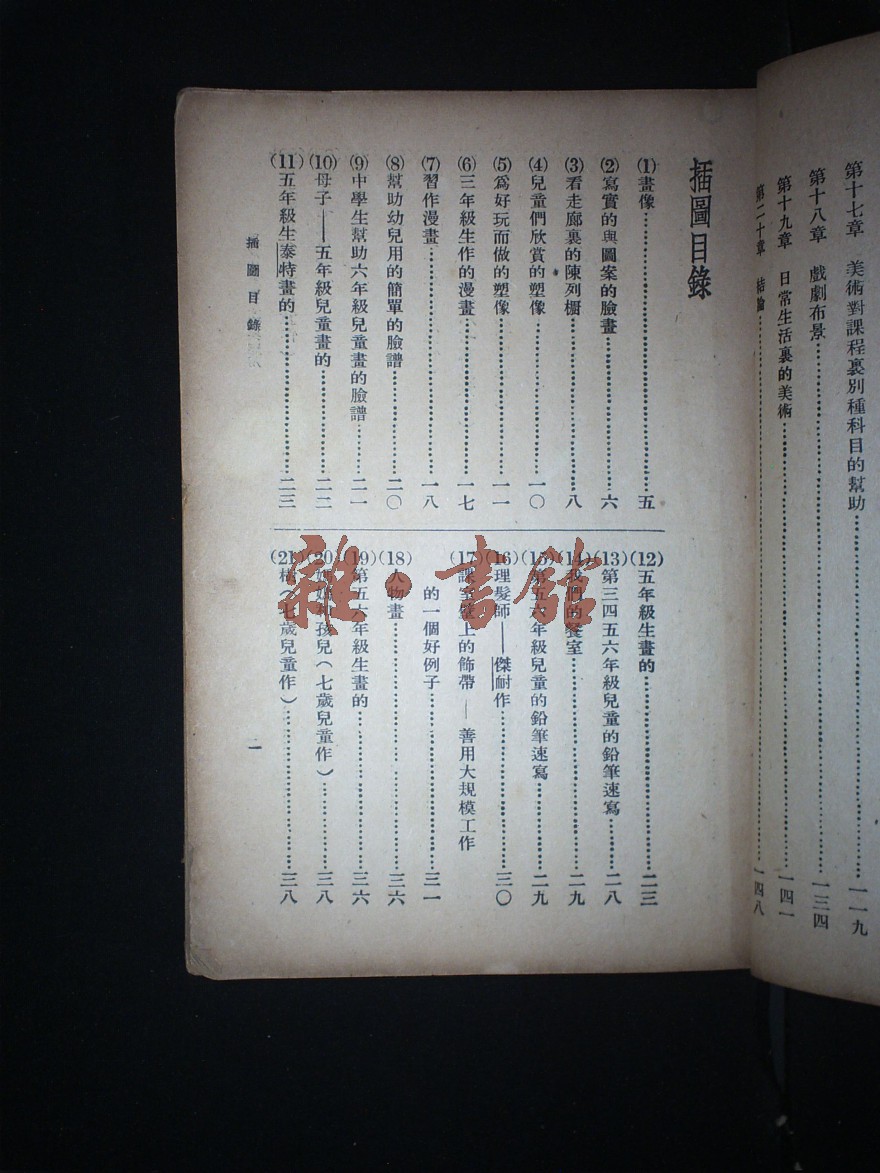 第十七章 美術對課程裏別種科目的幫助……一一九
第十八章 戲劇布景……一三四
第十九章 日常生活裏的美術……一四一
第二十章 結論……一四八
插圖目錄
(1)畫像……五
(2)寫實的與圖案的臉畫……六
(3)看走廊裏的陳列櫥……八
(4)兒童們欣賞的塑像……一〇
(5)爲好玩而做的塑像……一一
(6)三年級生作的漫畫……一七
(7)習作漫畫……一八
(8)幫助幼兒用的簡單的臉譜……二〇
(9)中學生幫助六年級兒童畫的臉譜……二一
(10)母子——五年級兒童畫的……二二
(11)五年級生泰特畫的……二三
(12)五年級生畫的……二三
(13)第三四五六年級兒童的鉛筆速寫……二八
(14)我們的餐室……二九
(15)第五六年級兒童的鉛筆速寫……二九
(16)理髮師——傑耐作……三〇
(17)課室壁上的飾帶——善用大規模工作
的一個好例子……三一
(18)人物畫……三六
(19)第五六年級生畫的……三六
(20)孩兒(七歲兒童作)……三八
(21)橋(七歲兒童作)……三八
插圖目錄
一
雜·書館